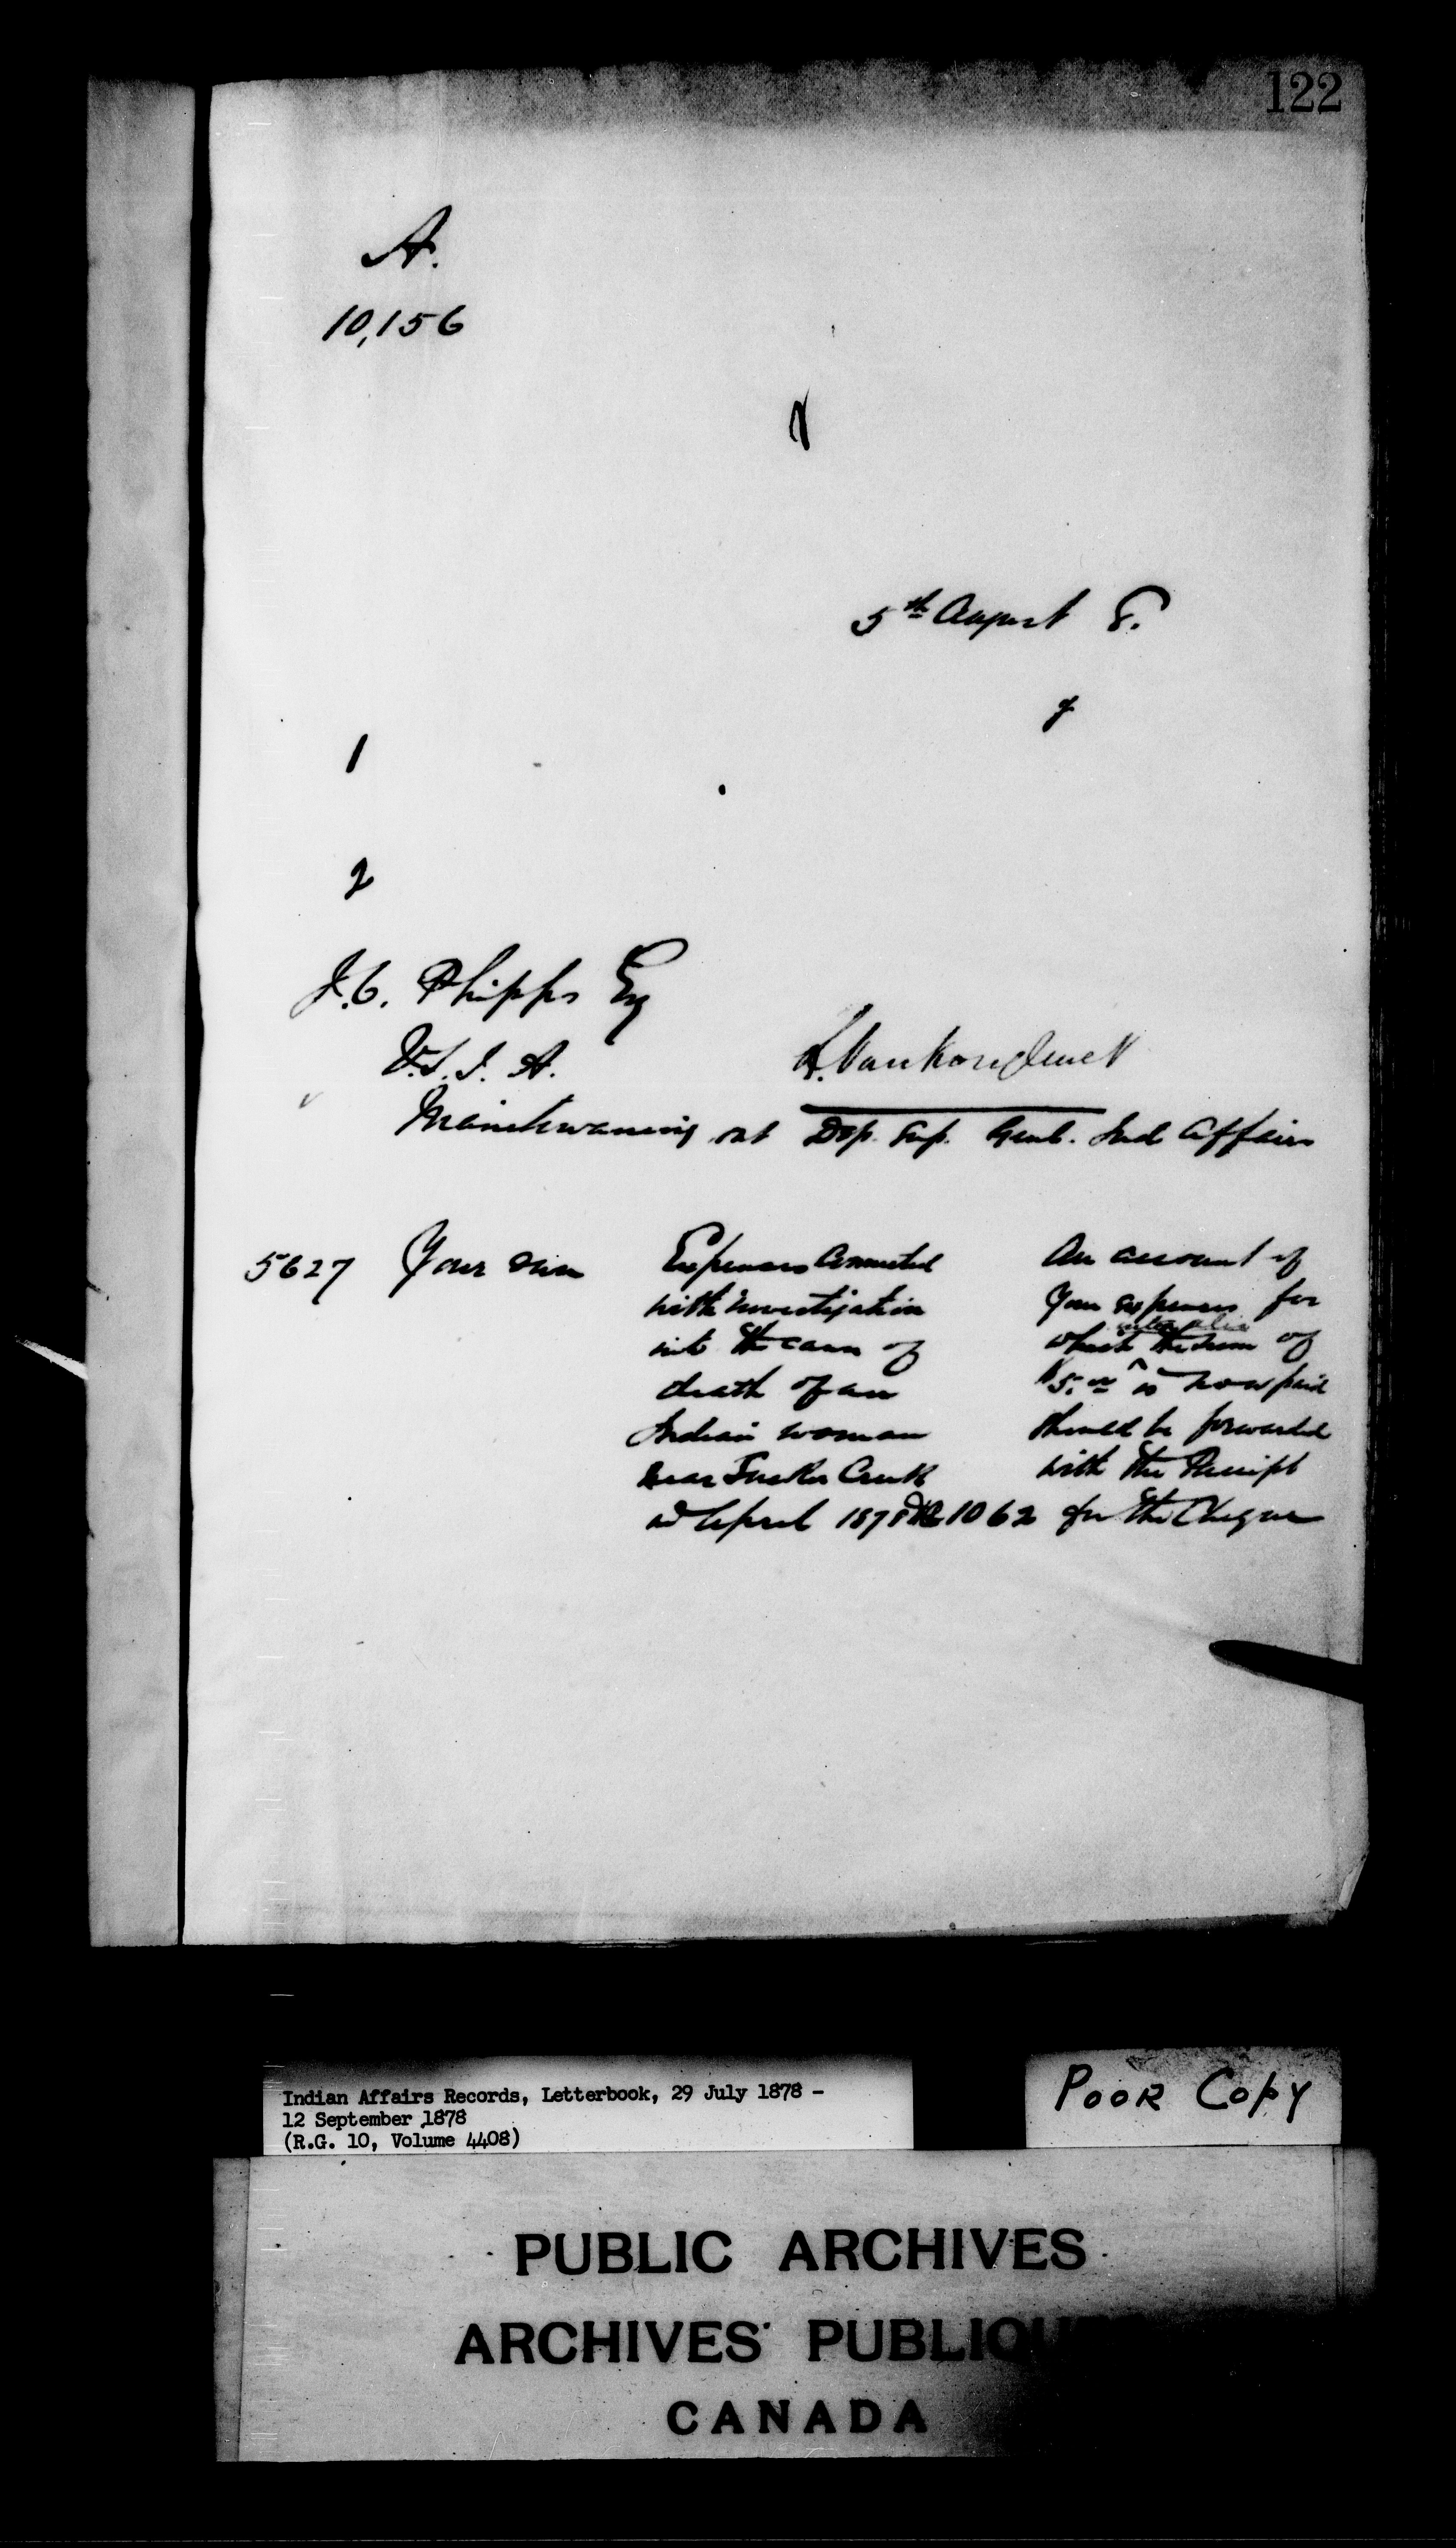 122
A.
10,156
5th August 8.
1
2
J.C. Phipps Esq
V.S.I.A.
L. Vankoughnet
Manitowaning Ont Dep. Sup. Genl. Ind Affairs
5627 Your own Expenses Connected An account of
with investigation your expenses for
into the cause of which the sum of
death of an $5.00 ^ is now paid
Indian woman should be forwarded
near Creek with the Receipt
in April 1878 1062 for the Cheque
Indian Affairs Records, Letterbook, 29 July 1878 -
12 September 1878
(R.G. 10, Volume 4408)
POOR COPY
PUBLIC ARCHIVES
ARCHIVES PUBLIQU
CANADA